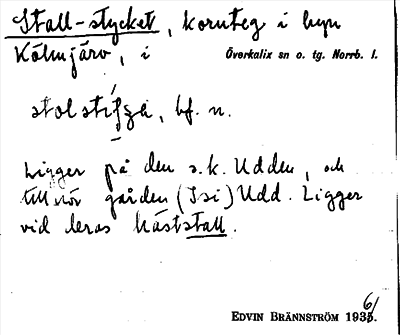 Stall-stycket, kornteg i byn
Kölmjärv, i Överkalix sn o. tg. Norrb. l.
bf. n.
Ligger på den s.k. Udden, och
tillhör gården (Isi) Udd. Ligger
vid deras häststall.
EDVIN BRÄNNSTRÖM 1936.